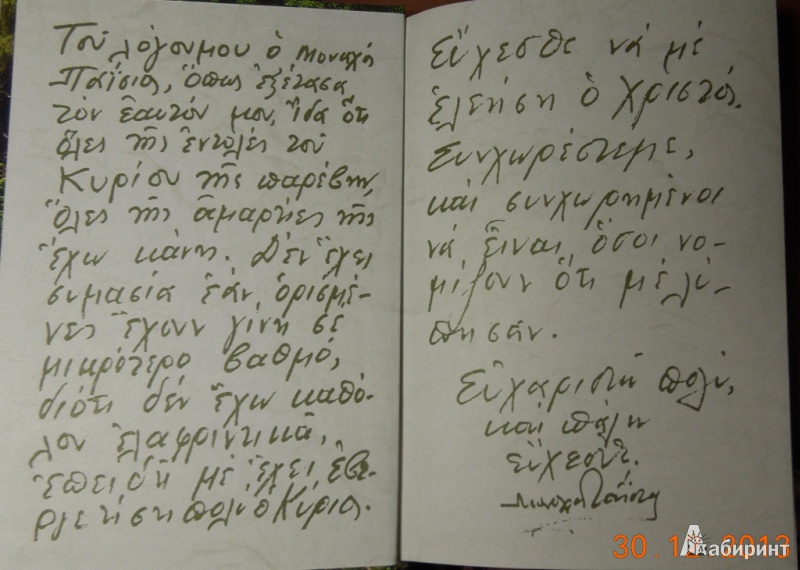 Τοῦ λόγου μου ὁ Μοναχός
Παΐσιος, ὅπως ἐξέτασα
τὸν ἑαυτόν μου, εἶδα ὅτι
ὅλες τῆς ἐντολές τοῦ
Κυρίου τῆς παρέβην,
ὅλες τῆς ἁμαρτίες τῆς
ἔχω κάνη. Δέν ἔχει
σημασία ἐάν ὁρισμέ-
νες ἔχουν γίνη σέ
μικρότερο βαθμό,
διότι δέν ἔχω καθό-
λου ἐλαφρυντικά,
ἐπειδή μέ ἔχει εὐερ-
γετήση πολύ ὁ Κύριος.
Εὔχεσθε νά μέ
ἐλεήση ὁ Χριστός.
Συγχωρέστε με,
καί συγχωρημένοι
νά εἶναι, ὅσοι νο-
μίζουν ὅτι μέ λύ-
πησαν.
Εὐχαριστῶ πολύ,
καί πάλη
εὔχεσθε.
Μοναχός Παΐσιος
30.12.2013
Лабиринт